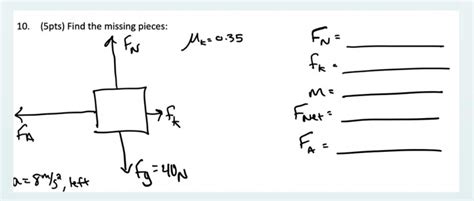 10. (5pts) Find the missing pieces:
F_N
μ_k = 0.35
F_A
f_k
F_g = 40N
a = 8 m/s², left
F_N =
f_k =
m =
F_net =
F_A =